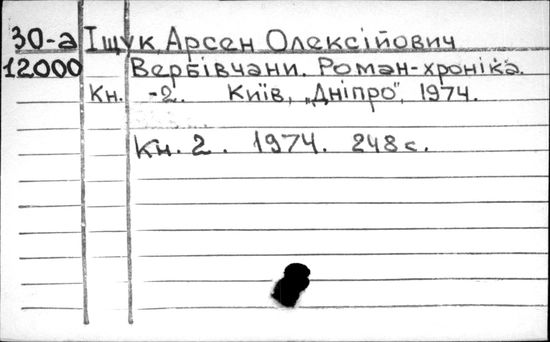 30-а Іщук, Арсен Олексійович
12000 Вербівчани. Роман-хроніка.
Кн. -2. Київ, „Дніпро", 1974.
Кн. 2. 1974. 248 с.